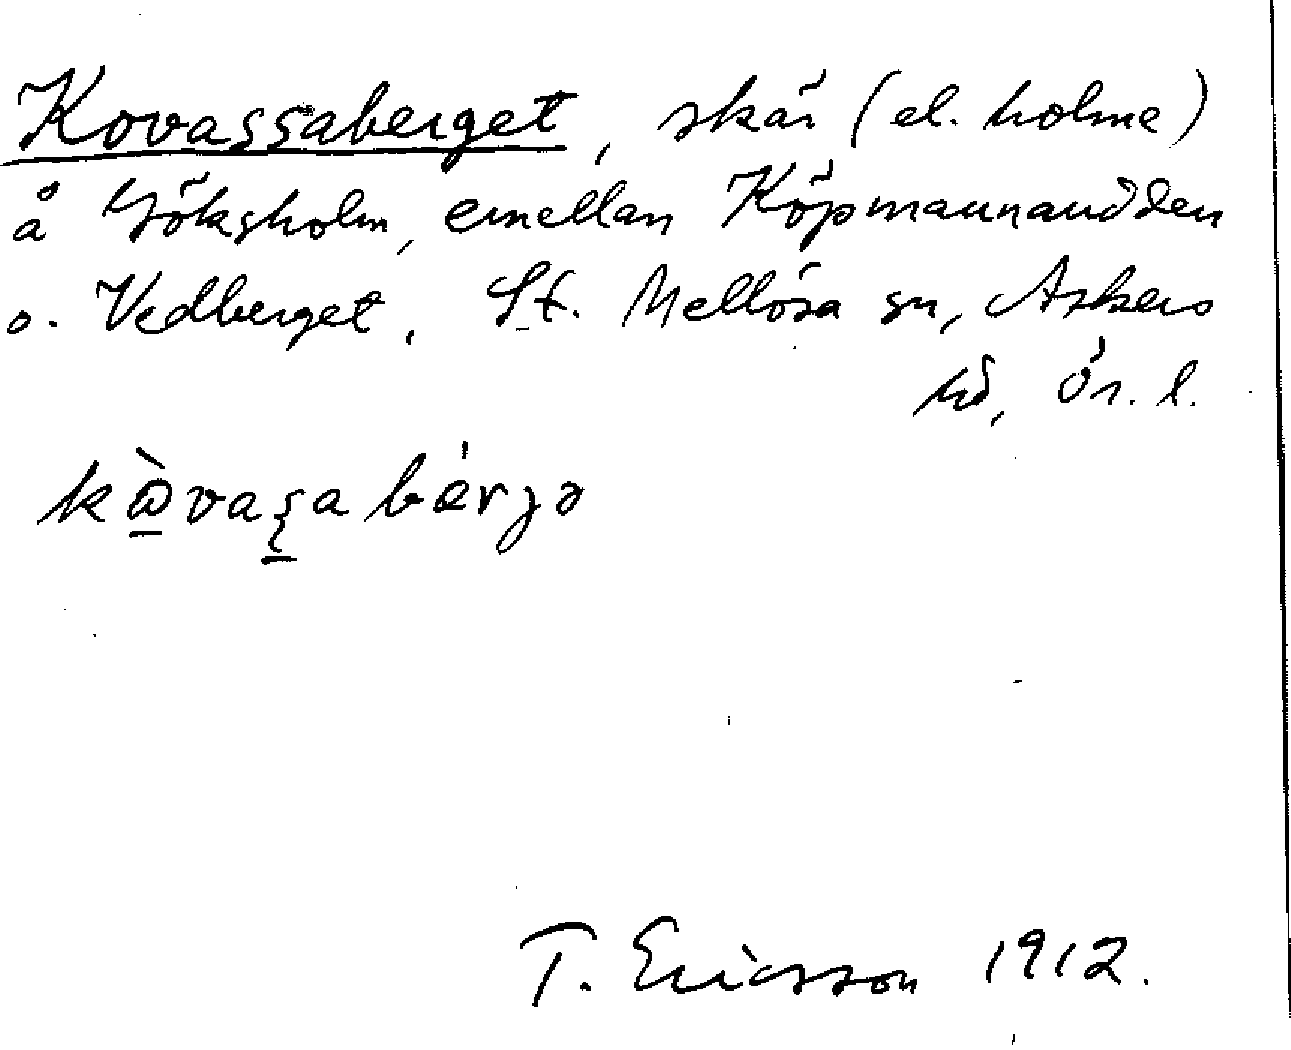 Kovassaberget, skär (el. holme)
å Göksholm, emellan Köpmannaudden
o. Vedberget, St. Mellösa sn, Askers
hd, Ör. l.
kòvaʂa bérjə
T. Ericsson 1912.